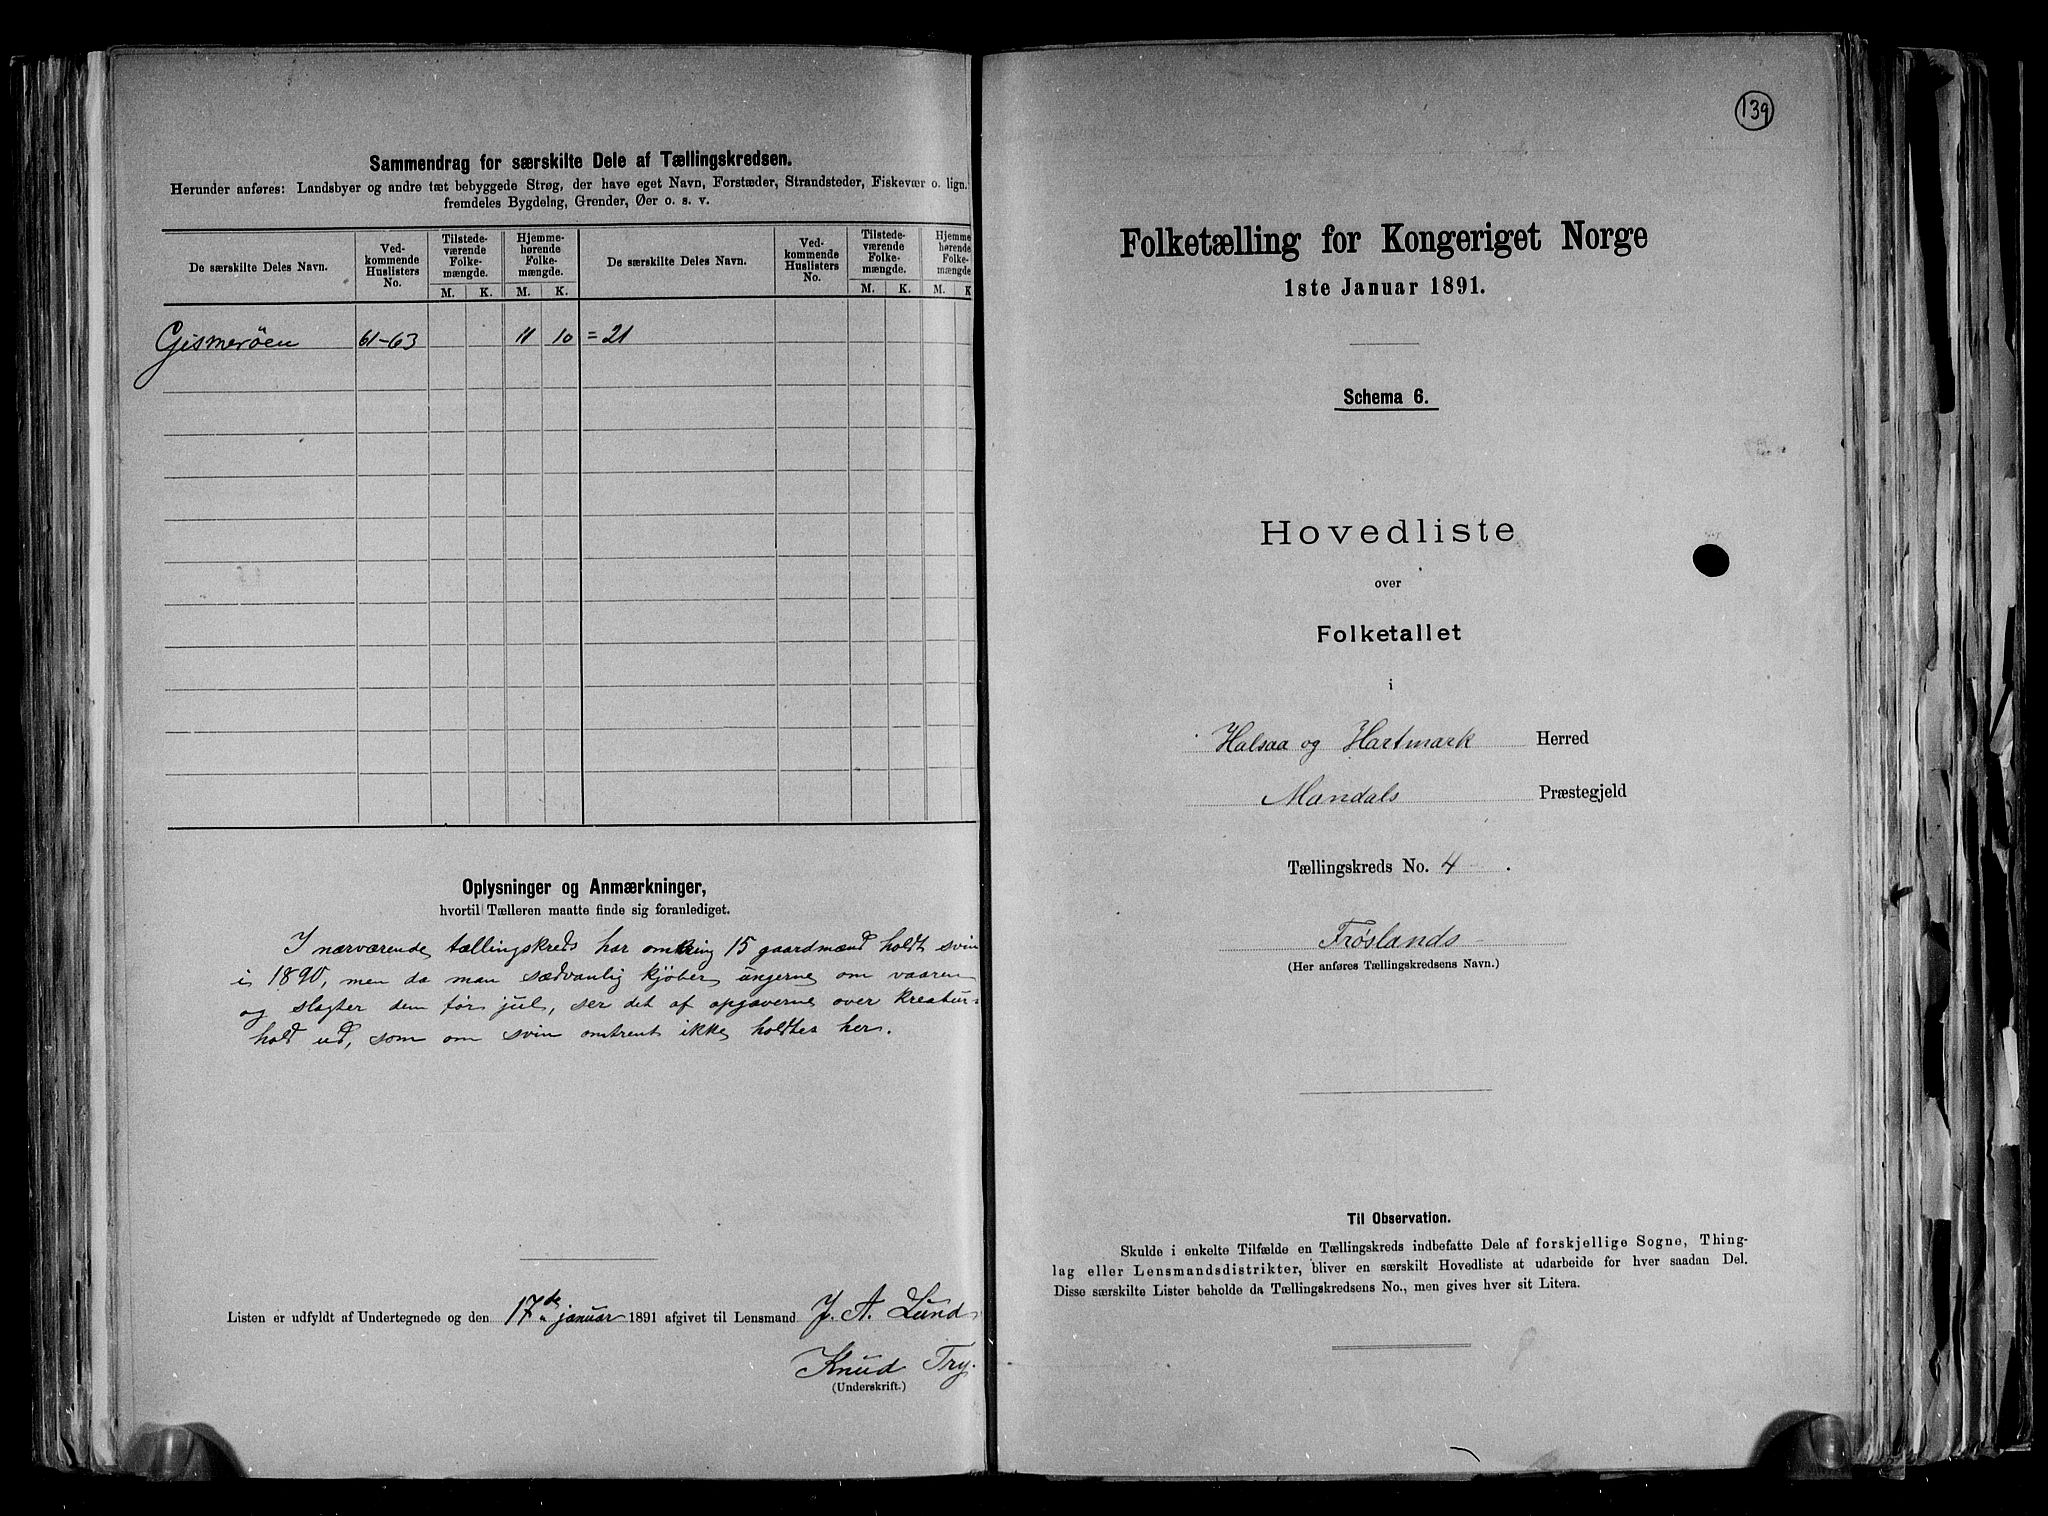 Sammendrag for særskilte Dele af Tællingskredsen.
Herunder anføres: Landsbyer og andre tæt bebyggede Strøg, der have eget Navn, Forstæder, Strandsteder, Fiskevær o. lign.
fremdeles Bygdelag, Grender, Øer o. s. v.
De særskilte Deles Navn. Ved-kommende Huslisters No. Tilstede-værende Folke-mængde. Hjemme-hørende Folke-mængde. De særskilte Deles Navn. Ved-kommende Huslisters No. Tilstede-værende Folke-mængde. Hjemme-hørende Folke-mængde
M. K. M. K. M. K. M. K
Gismerøen 61-63 11 10 = 21
Oplysninger og Anmærkninger,
hvortil Tælleren maatte finde sig foranlediget.
I nærværende tællingskreds har omkring 15 gaardmænd holdt svin
i 1890, men da man sædvanlig kjøber ungerne om vaaren
og slagter dem før jul, ser det af opgaverne over kreatur-
hold ud, som om svin omtrent ikke holdtes her.
Listen er udfyldt af Undertegnede og den 17de januar 1891 afgivet til Lensmand J. A. Lund
Knud Try.
(Underskrift.)
139
Folketælling for Kongeriget Norge
1ste Januar 1891.
Schema 6.
Hovedliste
over
Folketallet
i
Halsaa og Hartmark Herred
Mandals Præstegjeld
Tællingskreds No. 4.
Frøslands
(Her anføres Tællingskredsens Navn.)
Til Observation.
Skulde i enkelte Tilfælde en Tællingskreds indbefatte Dele af forskjellige Sogne, Thing-
lag eller Lensmandsdistrikter, bliver en særskilt Hovedliste at udarbeide for hver saadan Del.
Disse særskilte Lister beholde da Tællingskredsens No., men gives hver sit Litera.